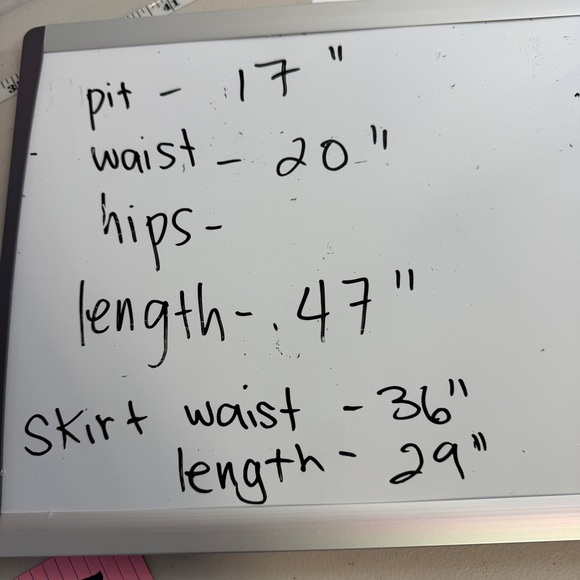 pit - 17"
waist - 20"
hips-
length- 47"
skirt waist - 36"
length - 29"